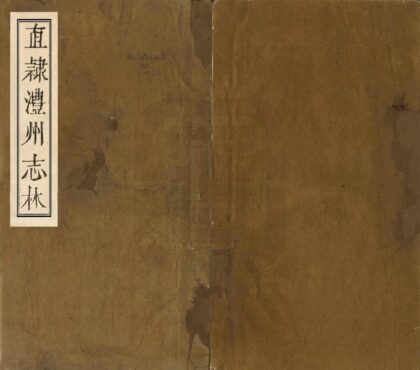 直隷澧州志林